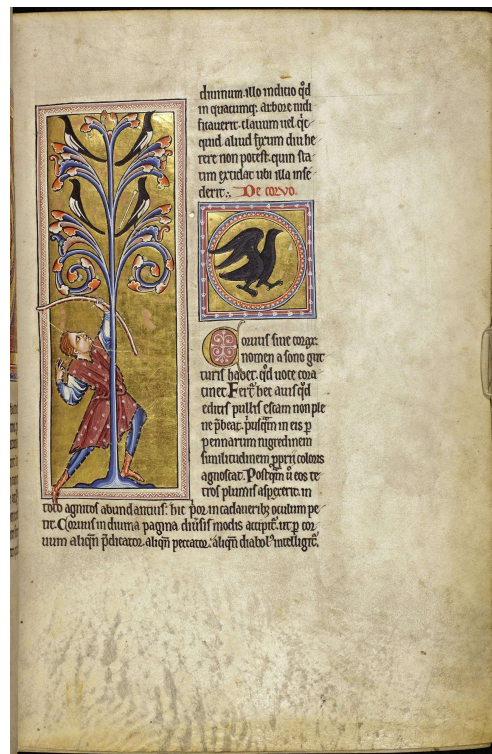 diuinum. illo indicio qd
in quacumq; arbore nidi
ficauerit. clauum uel qic
quid aliud fixum diu he
rere non potest. quin sta
tim excidat ubi illa inse
derit. De coruo.
Coruus siue corax
nomen a sono gut
turis habet. qd uoce cora
cinet. Fert hec auis qd
editis pullis escam non ple
ne pbeat. pusqm in eis p
pennarum nigredinem
similitudinem pprii coloris
agnoscat. Postqm u eos te
tros plumis aspexerit. in
toto agnitos abundantius. hic por in cadauerib; oculum pe
tit. Coruus in diuina pagina diuersis modis accipit. ut p cor
uum aliqn pdicator. aliqn peccator. aliqn diabol intelligit.